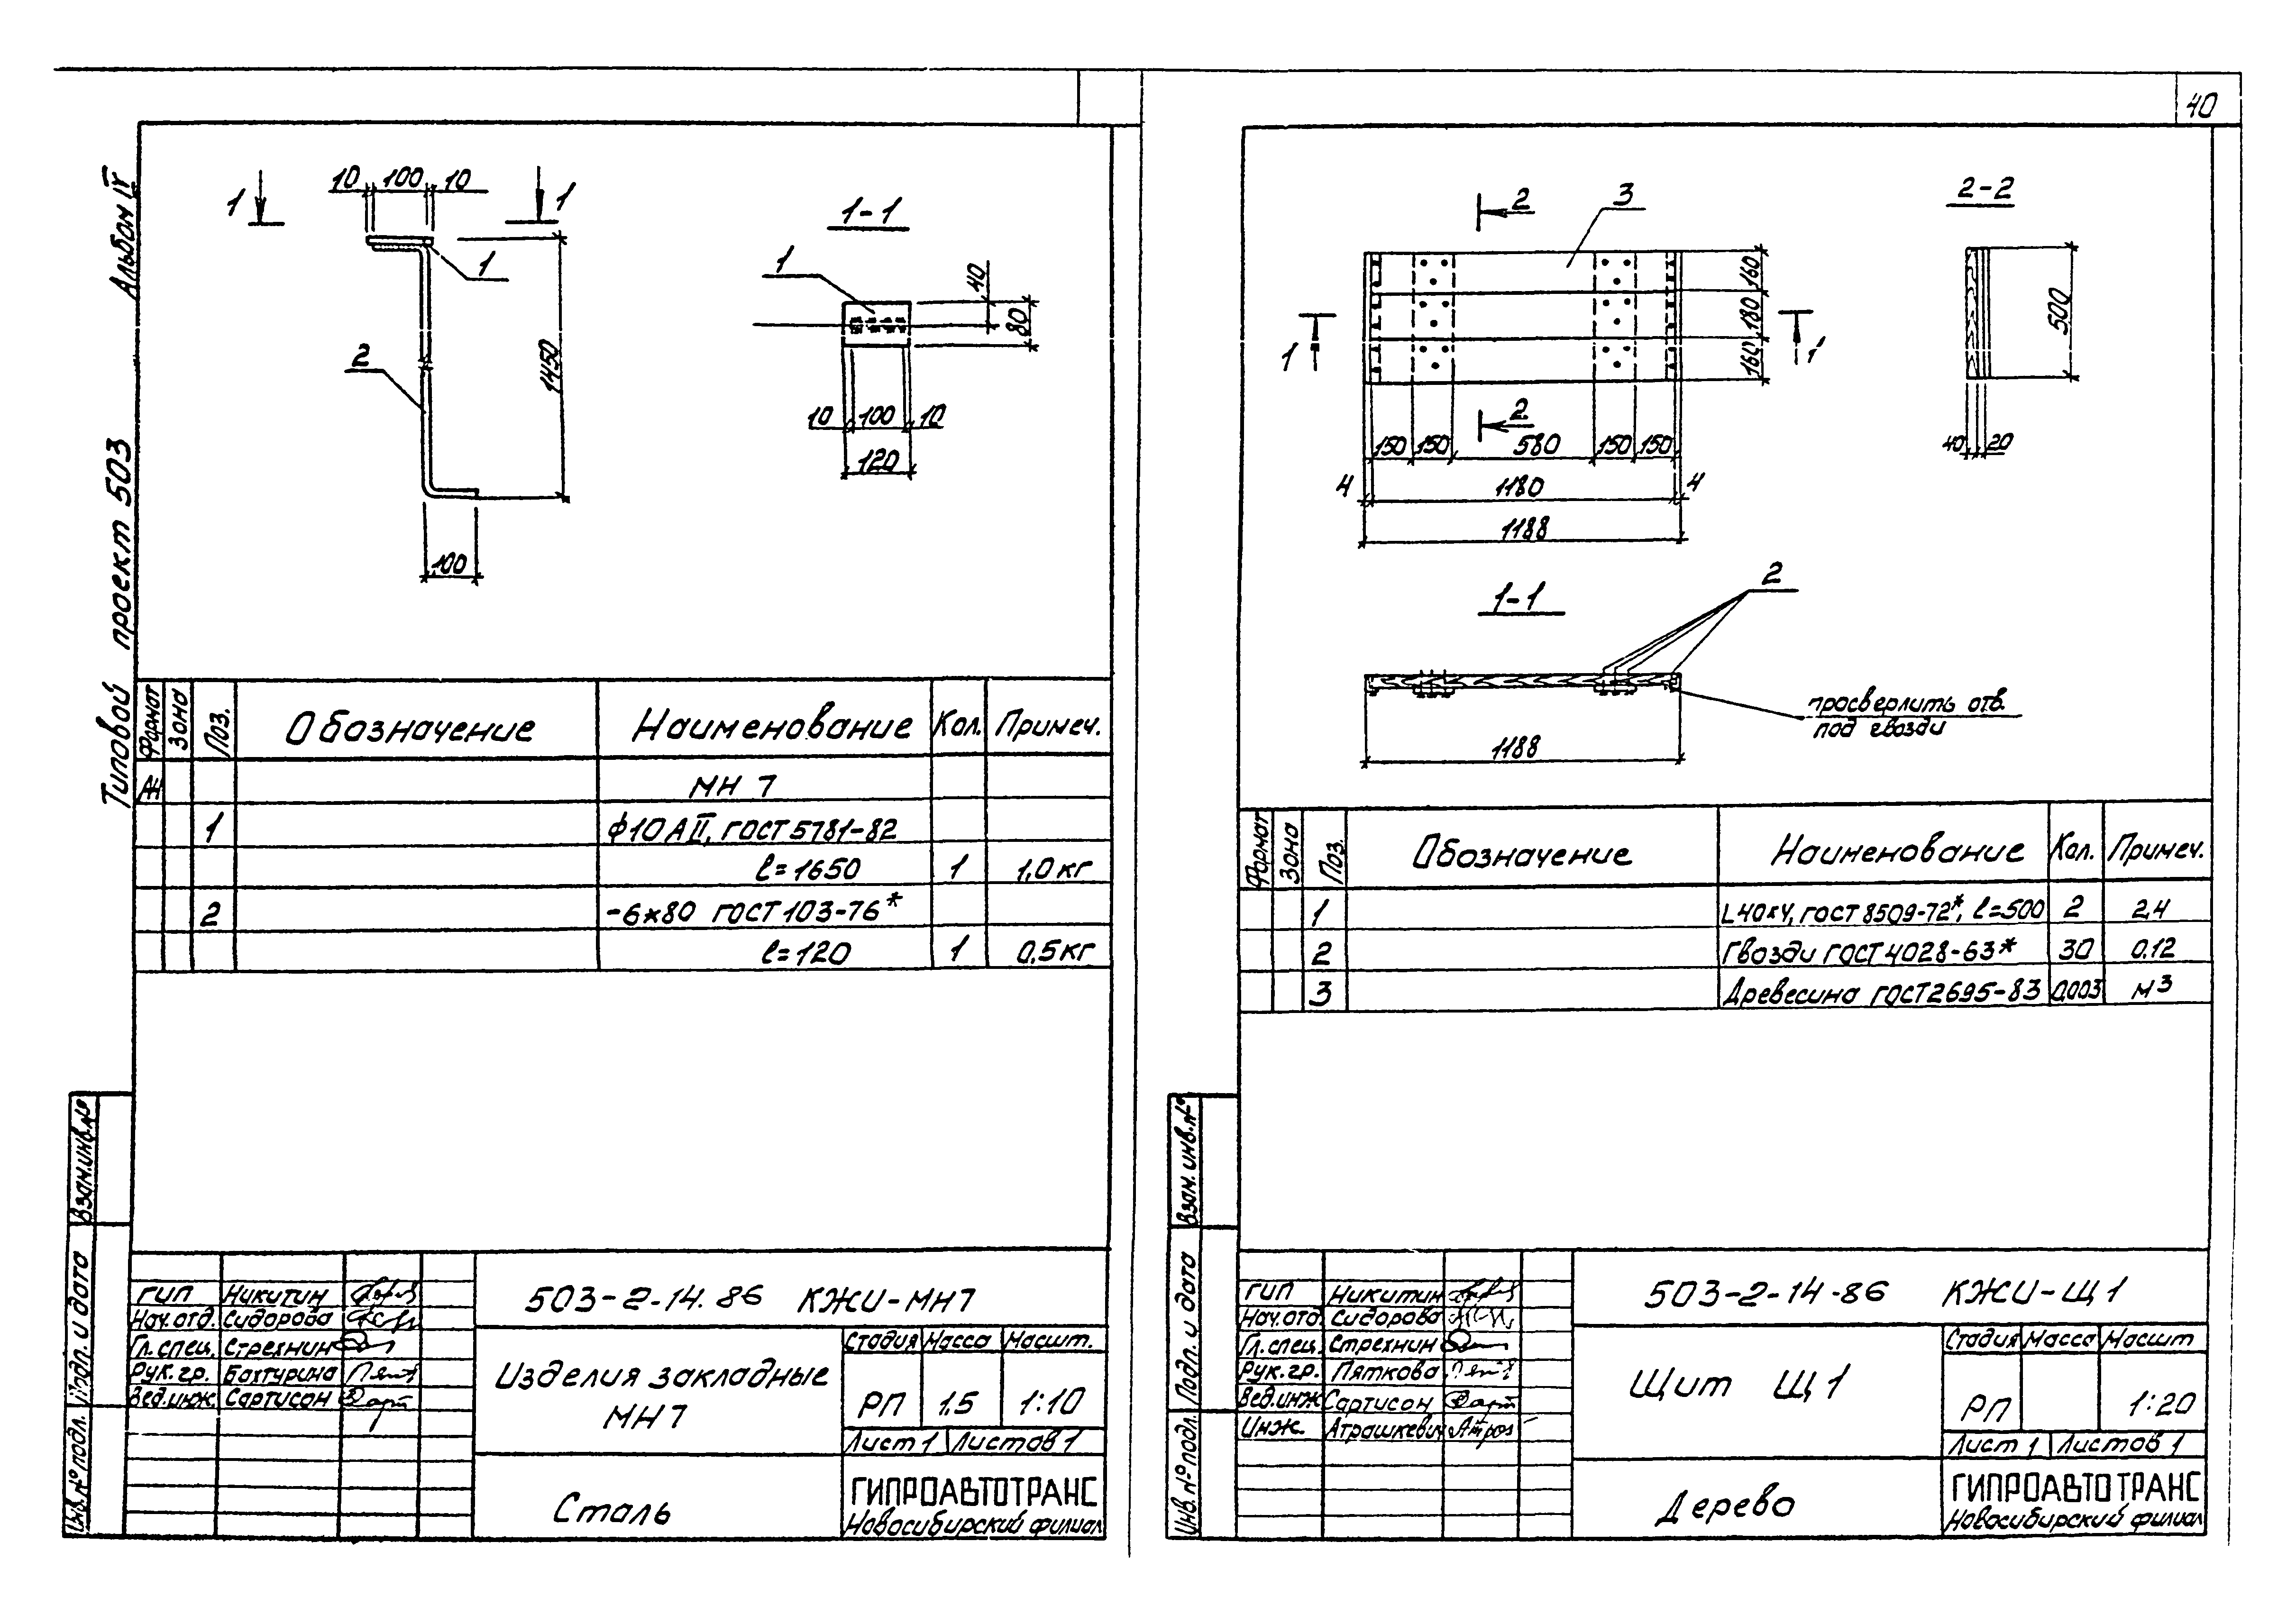 40
Альбом IV
Типовой проект 503
10 100 10
1 1
1
2
1450
100
1-1
1
40
80
10 100 10
120
Формат Зона Поз. Обозначение Наименование Кол. Примеч.
А4 МН 7
1 ф10 АII, ГОСТ 5781-82
ℓ=1650 1 1,0 кг
2 -6×80 ГОСТ 103-76*
ℓ=120 1 0,5 кг
Взам.инв.№
Подл. и дата
Инв.№ подл.
ГИП Никитин
Нач.отд. Сидорова
Гл.спец. Стрехнин
Рук.гр. Бахтурина
Вед.инж. Сартисон
503-2-14.86 КЖИ-МН7
Изделия закладные
МН7
Стадия Масса Масшт.
РП 1,5 1:10
Лист 1 Листов 1
Сталь
ГИПРОАВТОТРАНС
Новосибирский филиал
2 3
160
180
160
1 1
2
150 150 580 150 150
4 1180 4
1188
2-2
500
40 20
1-1
2
просверлить отв.
под гвозди
1188
Формат Зона Поз. Обозначение Наименование Кол. Примеч.
1 L40×4, ГОСТ 8509-72*, ℓ=500 2 2,4
2 Гвозди ГОСТ 4028-63* 30 0.12
3 Древесина ГОСТ 2695-83 0,003 м3
Взам. инв.№
Подл. и дата
Инв.№ подл.
ГИП Никитин
Нач.отд. Сидорова
Гл.спец. Стрехнин
Рук.гр. Пяткова
Вед.инж Сартисон
Инж. Атрашкевич
503-2-14-86 КЖИ-Щ1
Щит Щ1
Стадия Масса Масшт
РП 1:20
Лист 1 Листов 1
Дерево
ГИПРОАВТОТРАНС
Новосибирский филиал